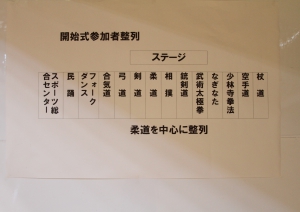 開始式参加者整列
ステージ
杖道
空手道
少林寺拳法
なぎなた
武術太極拳
銃剣道
相撲
柔道
剣道
弓道
合気道
フォークダンス
民踊
スポーツ総合センター
柔道を中心に整列